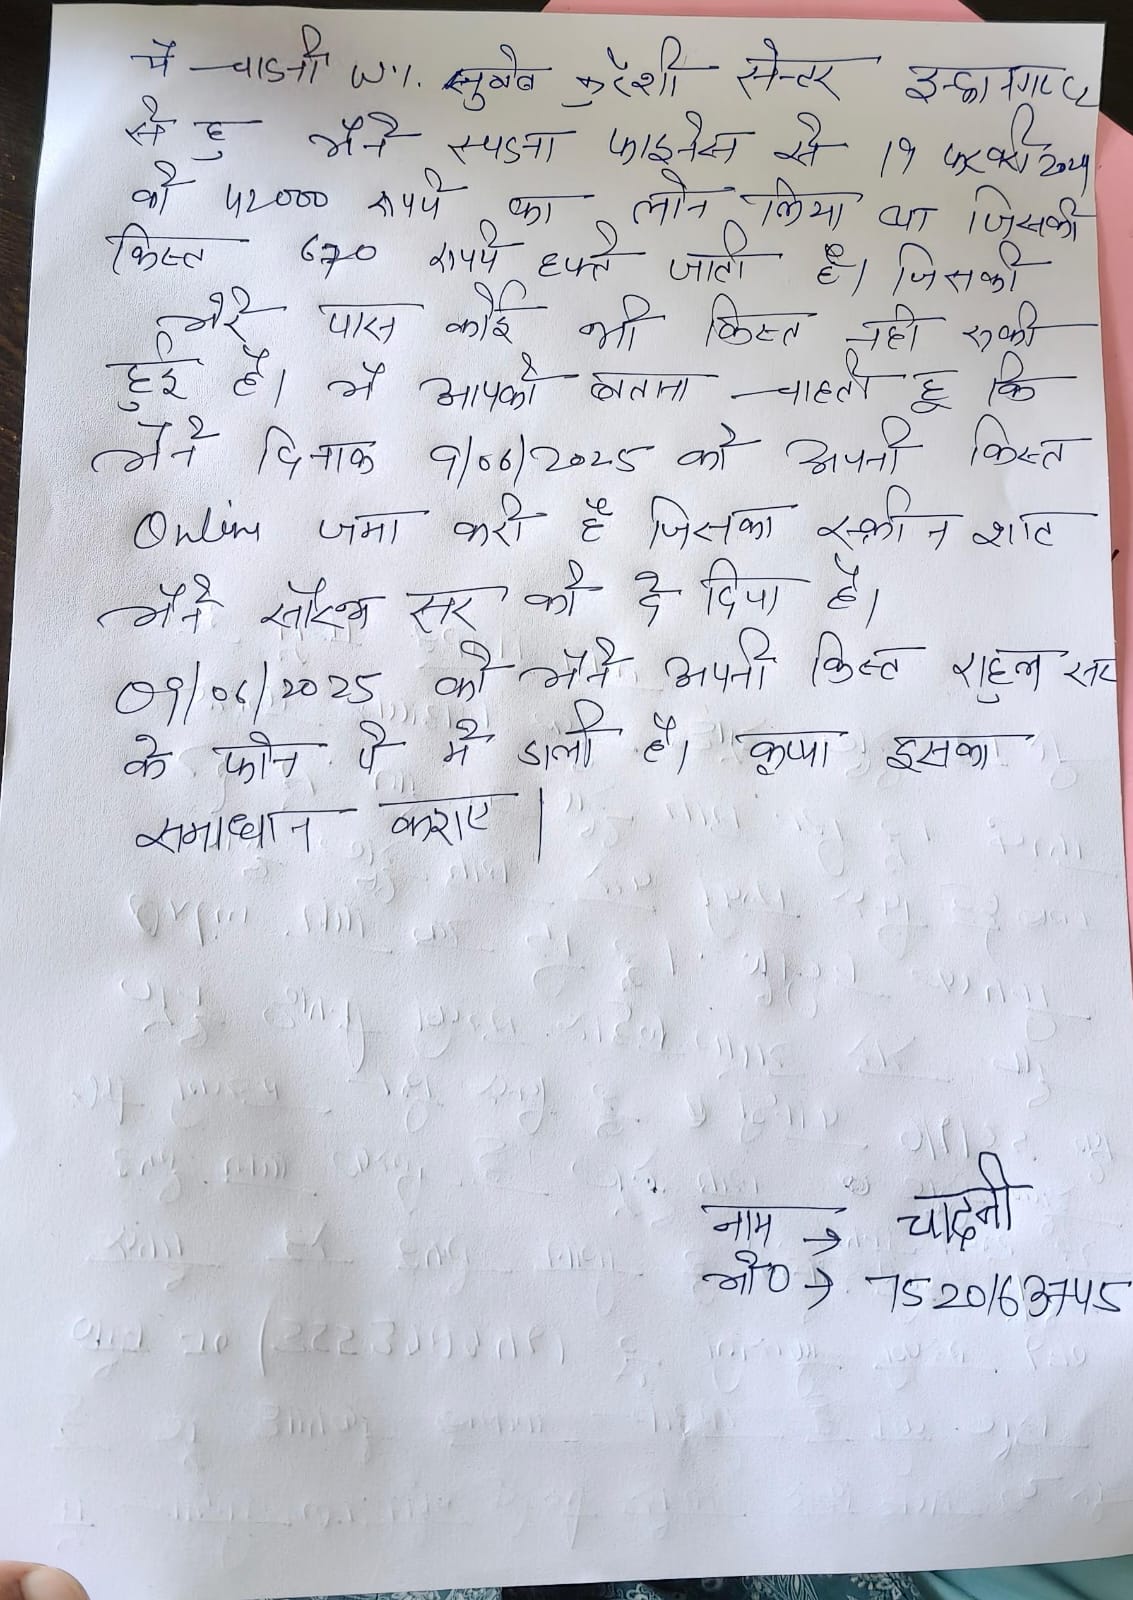 में चाडनी W/. कुरेशी सेन्टर
से हु मैने स्पडना फाइनेंस से 19 फरवरी
को 42000 रुपये का लोन लिया था जिसकी
किस्त 670 रुपये हफ्ते जाती है। जिसकी
मेरे पास कोई भी किस्त नही रुकी
हुई है। में आपको बताना चाहती हू कि
मैने दिनाक 9/06/2025 को अपनी किस्त
Online जमा करी है जिसका स्क्रीन शाट
मैने सौरभ सर को दे दिया है।
09/06/2025 को मैने अपनी किस्त राहुल सर
के फोन पै में डाली है। कृप्या इसका
समाधान कराए।
नाम → चादनी
मो0 → 7520163745